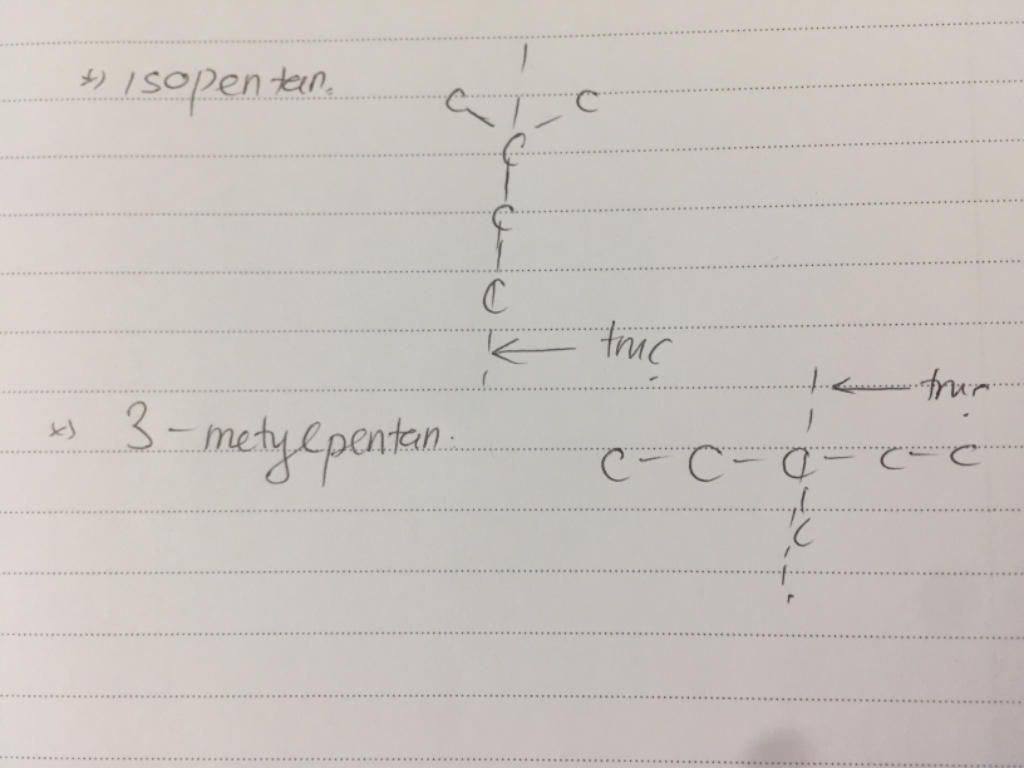 *) isopentan.
C C
C
C
C
trục
*) 3-metylpentan.
trục
C - C - C - C - C
C